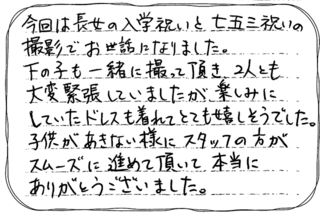 今回は長女の入学祝いと七五三祝いの
撮影でお世話になりました。
下の子も一緒に撮って頂き、2人とも
大変緊張していましたが、楽しみに
していたドレスも着れてとても嬉しそうでした。
子供があきない様にスタッフの方が
スムーズに進めて頂いて本当に
ありがとうございました。